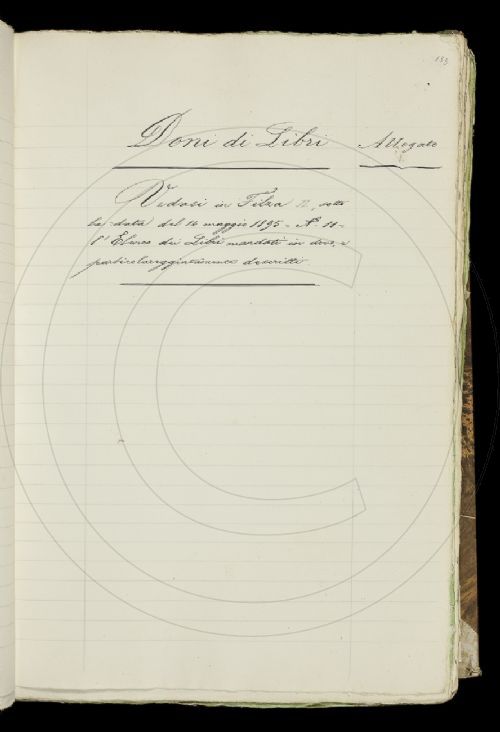 153
Doni di Libri Allegato
Vedasi in Filza n., sotto
la data del 16 maggio 1895 - N.° 11 -
l'Elenco dei Libri mandati in dono, e
particolareggiatamente descritti.